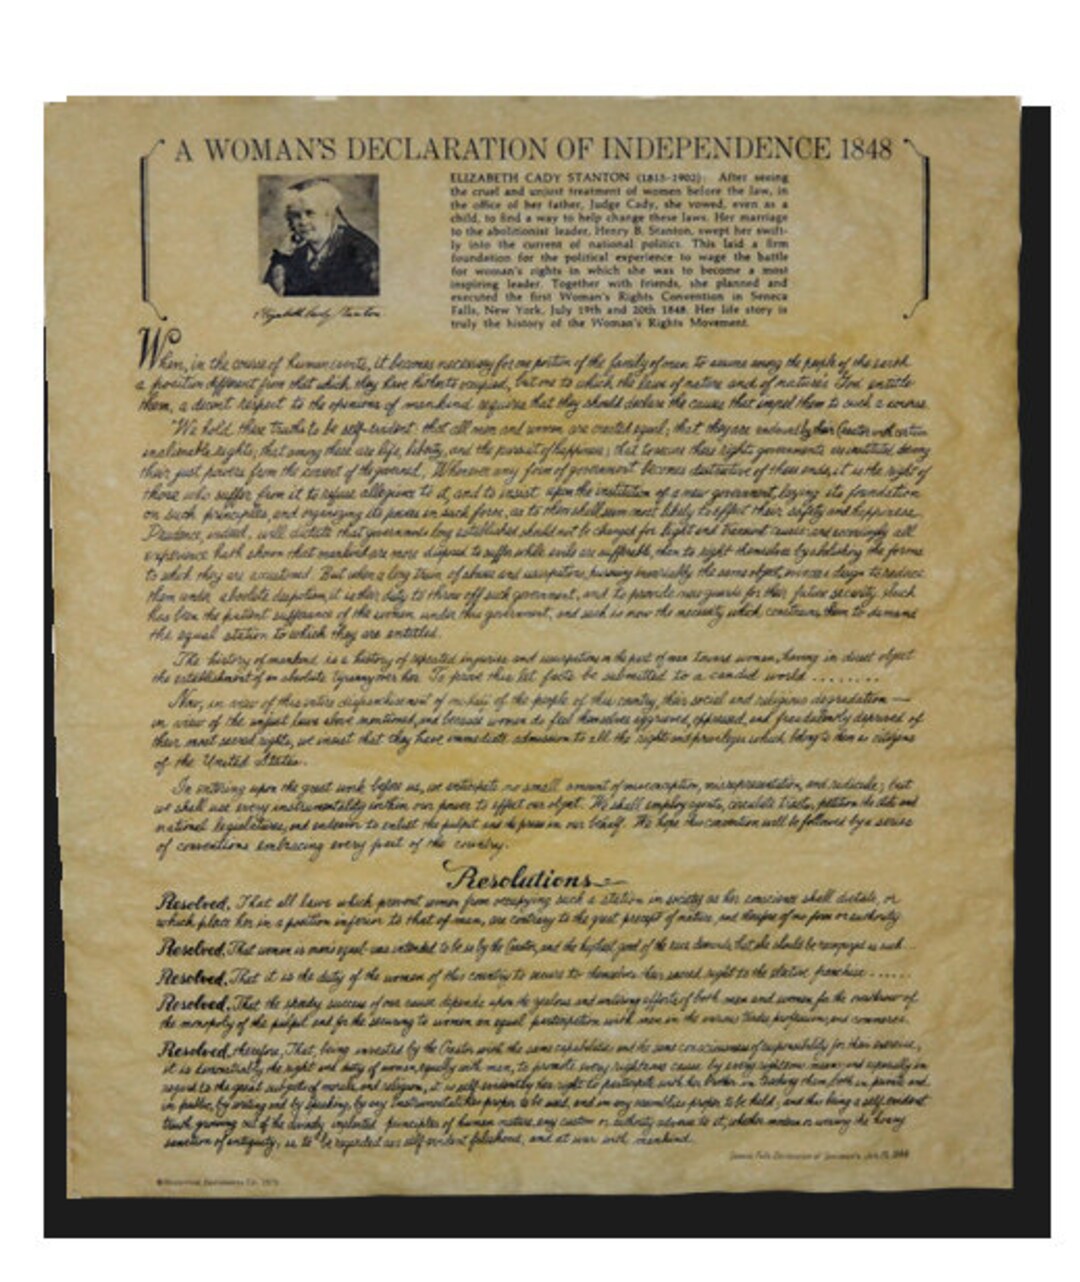 A WOMAN'S DECLARATION OF INDEPENDENCE 1848
ELIZABETH CADY STANTON (1815-1902): After seeing
the cruel and unjust treatment of women before the law, in
the office of her father, Judge Cady, she vowed, even as a
child, to find a way to help change these laws. Her marriage
to the abolitionist leader, Henry B. Stanton, swept her swift-
ly into the current of national politics. This laid a firm
foundation for the political experience to wage the battle
for woman's rights in which she was to become a most
inspiring leader. Together with friends, she planned and
executed the first Woman's Rights Convention in Seneca
Falls, New York, July 19th and 20th 1848. Her life story is
truly the history of the Woman's Rights Movement.
Elizabeth Cady Stanton
When, in the course of human events, it becomes necessary for one portion of the family of man to assume among the people of the earth
a position different from that which they have hitherto occupied, but one to which the laws of nature and of nature's God entitle
them, a decent respect to the opinions of mankind requires that they should declare the causes that impel them to such a course.
"We hold these truths to be self-evident: that all men and women are created equal; that they are endowed by their Creator with certain
inalienable rights; that among these are life, liberty, and the pursuit of happiness; that to secure these rights governments are instituted, deriving
their just powers from the consent of the governed. Whenever any form of government becomes destructive of these ends, it is the right of
those who suffer from it to refuse allegiance to it, and to insist upon the institution of a new government, laying its foundation
on such principles, and organizing its powers in such form, as to them shall seem most likely to effect their safety and happiness.
Prudence, indeed, will dictate that governments long established should not be changed for light and transient causes; and accordingly all
experience hath shown that mankind are more disposed to suffer while evils are sufferable, than to right themselves by abolishing the forms
to which they are accustomed. But when a long train of abuses and usurpations, pursuing invariably the same object, evinces a design to reduce
them under absolute despotism, it is their duty to throw off such government, and to provide new guards for their future security. Such
has been the patient sufferance of the women under this government, and such is now the necessity which constrains them to demand
the equal station to which they are entitled.
The history of mankind is a history of repeated injuries and usurpations on the part of man toward woman, having in direct object
the establishment of an absolute tyranny over her. To prove this let facts be submitted to a candid world ........
Now, in view of this entire disfranchisement of one-half of the people of this country, their social and religious degradation —
in view of the unjust laws above mentioned, and because women do feel themselves aggrieved, oppressed, and fraudulently deprived of
their most sacred rights, we insist that they have immediate admission to all the rights and privileges which belong to them as citizens
of the United States.
In entering upon the great work before us, we anticipate no small amount of misconception, misrepresentation, and ridicule; but
we shall use every instrumentality within our power to effect our object. We shall employ agents, circulate tracts, petition the state and
national legislatures, and endeavor to enlist the pulpit and the press in our behalf. We hope this convention will be followed by a series
of conventions embracing every part of the country.
Resolutions
Resolved, That all laws which prevent women from occupying such a station in society as her conscience shall dictate, or
which place her in a position inferior to that of man, are contrary to the great precept of nature, and therefore of no force or authority
Resolved, That woman is man's equal - was intended to be so by the Creator, and the highest good of the race demands that she should be recognized as such...
Resolved, That it is the duty of the women of this country to secure to themselves their sacred right to the elective franchise ......
Resolved, That the speedy success of our cause depends upon the zealous and untiring efforts of both men and women, for the overthrow of
the monopoly of the pulpit and for the securing to women an equal participation with men in the various trades, professions, and commerce.
Resolved, therefore, That, being invested by the Creator with the same capabilities and the same consciousness of responsibility for their exercise,
it is demonstrably the right and duty of woman, equally with man, to promote every righteous cause by every righteous means; and especially in
regard to the great subjects of morals and religion, it is self-evidently her right to participate with her brother in teaching them, both in private and
in public, by writing and by speaking, by any instrumentalities proper to be used, and in any assemblies proper to be held; and this being a self-evident
truth growing out of the divinely implanted principles of human nature, any custom or authority adverse to it, whether modern or wearing the hoary
sanction of antiquity, is to be regarded as self-evident falsehood, and at war with mankind.
Seneca Falls Declaration of Sentiments, July 19, 1848
© Historical Documents Co.